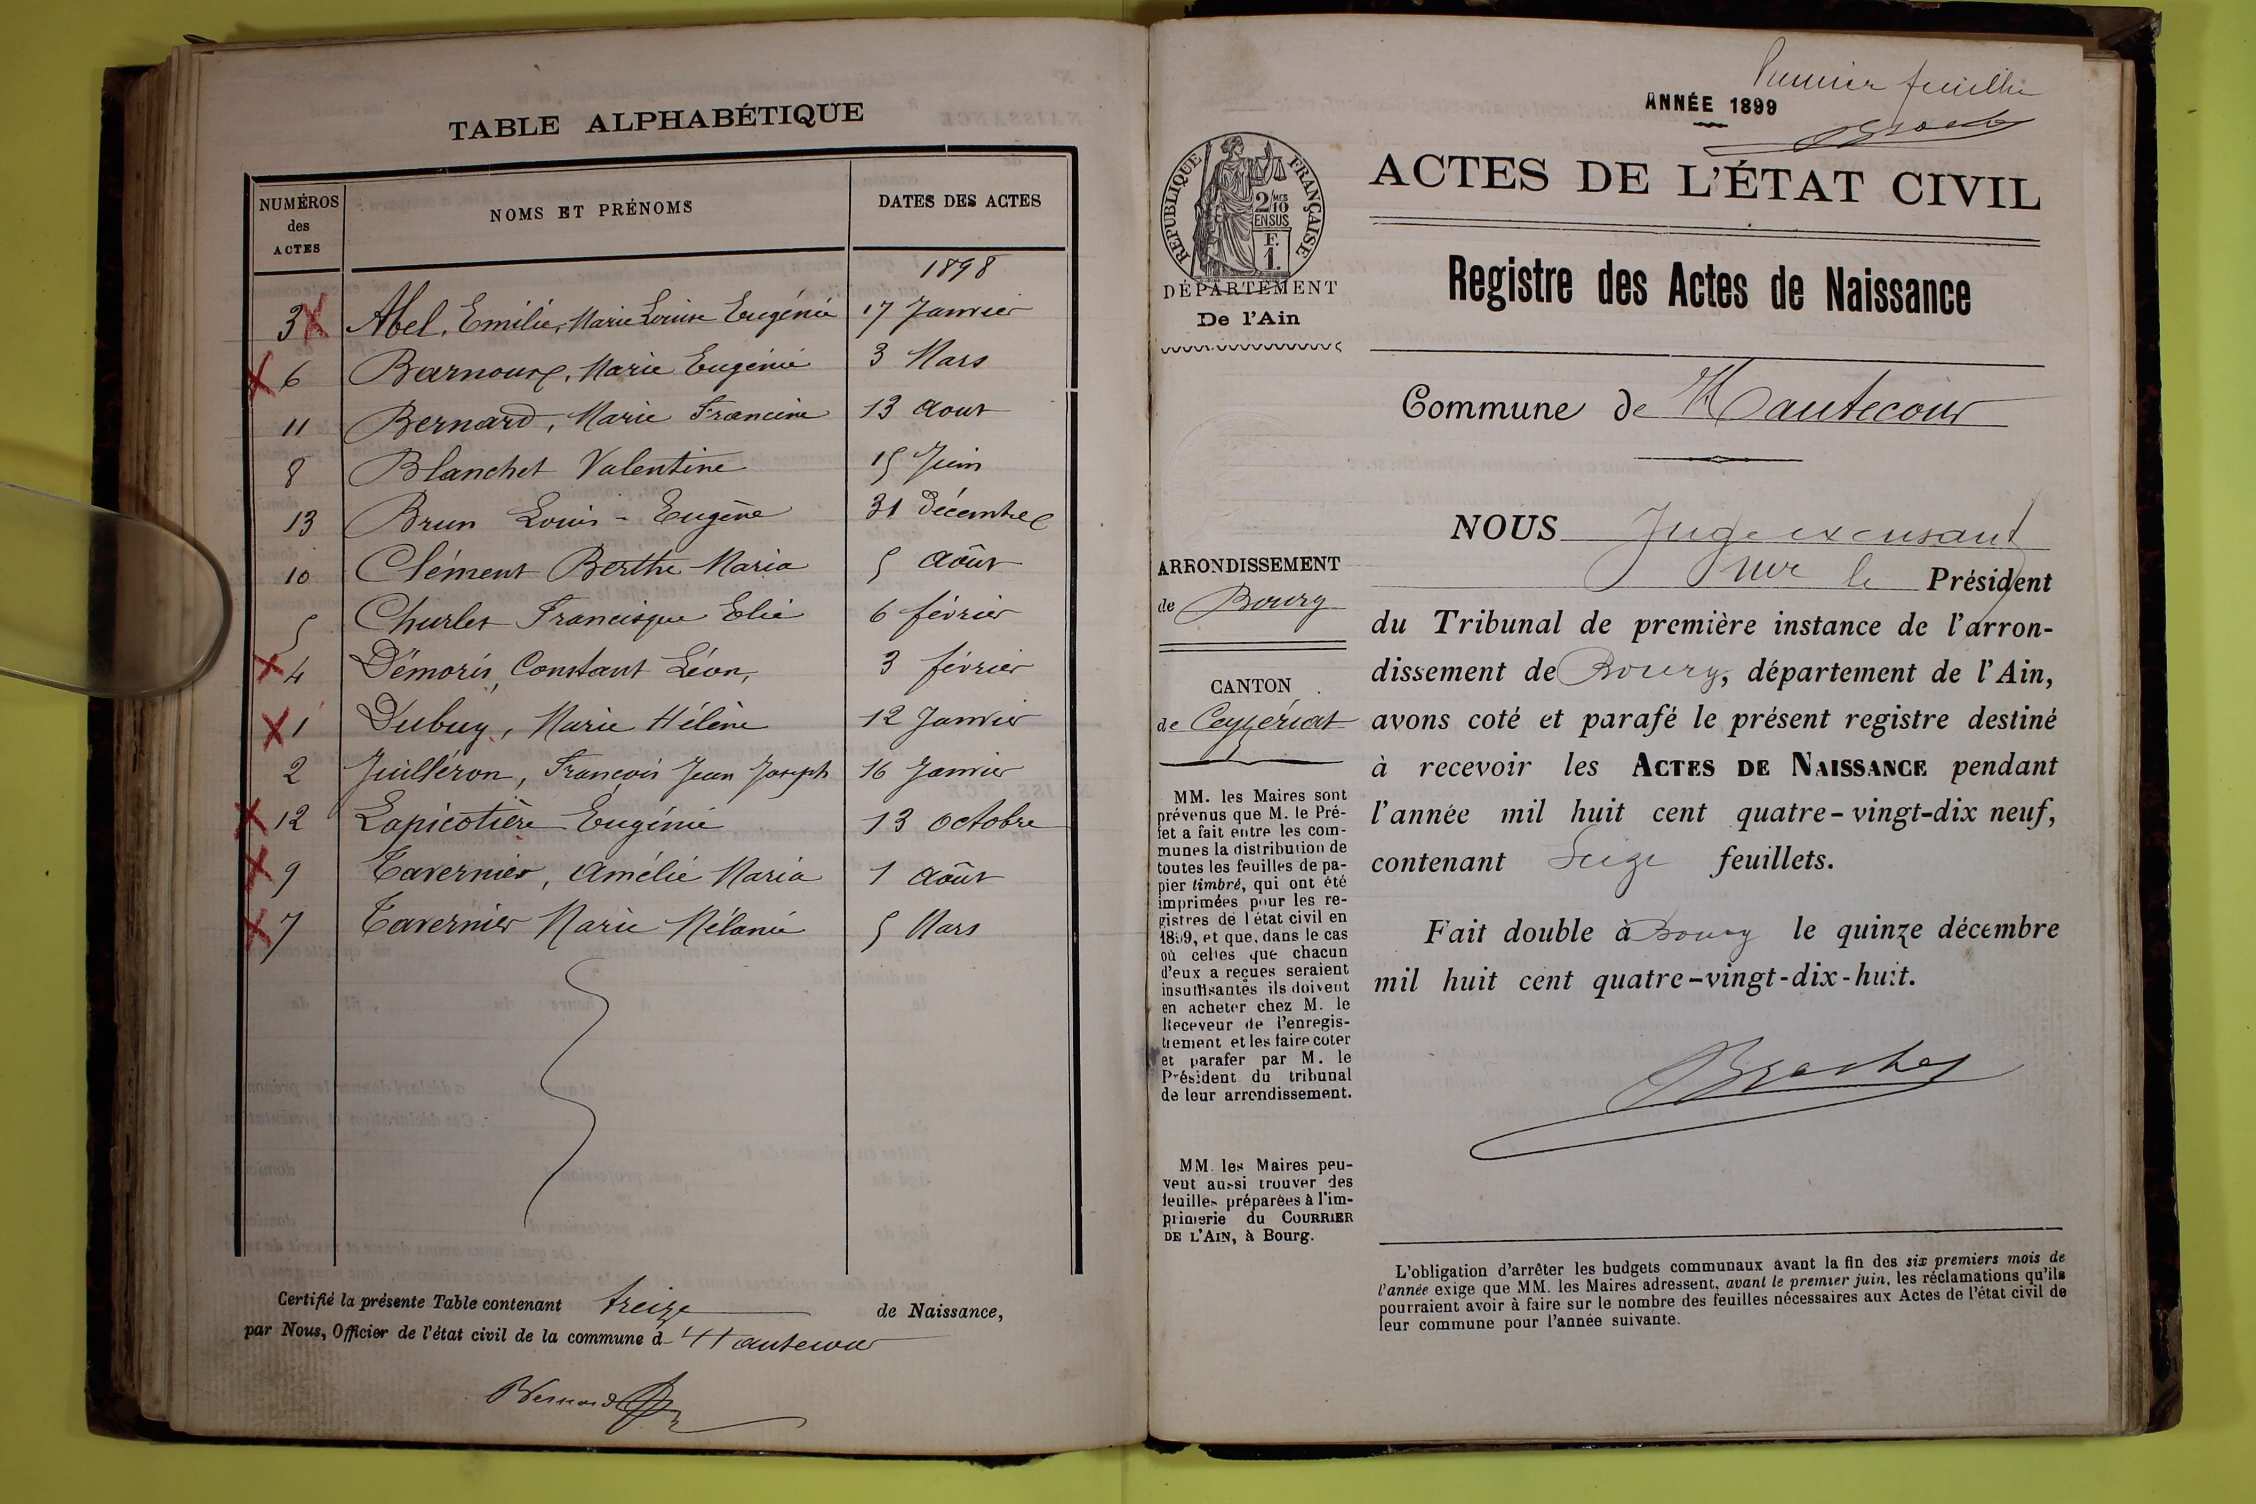 TABLE ALPHABÉTIQUE
NUMÉROS des ACTES NOMS ET PRÉNOMS DATES DES ACTES
1898
3 Abel, Emilie, Marie Louise Eugénie 17 Janvier
6 Barnoux, Marie Eugénie 3 Mars
11 Bernard, Marie Francine 13 Aout
8 Blanchet Valentine 15 Juin
13 Brun Louis-Eugène 31 Décembre
10 Clément Berthe Maria 5 Août
5 Charles Francisque Elie 6 février
4 Démoris, Constant Léon, 3 février
1 Dubuy, Marie Hélène 12 Janvier
2 Juilléron, François Jean Joseph 16 Janvier
12 Lapicotière Eugénie 13 Octobre
9 Tavernier, Amélie Maria 1 Août
7 Tavernier Marie Mélanie 5 Mars
Certifié la présente Table contenant treize de Naissance,
par Nous, Officier de l'état civil de la commune d Hautecour
Bernard
Premier feuillet
ANNÉE 1899
RÉPUBLIQUE FRANÇAISE
2/10
EN SUS
F.
1.
DÉPARTEMENT
De l'Ain
ACTES DE L'ÉTAT CIVIL
Registre des Actes de Naissance
Commune de Hautecour
ARRONDISSEMENT
de Bourg
CANTON
de Ceyzériat
MM. les Maires sont
prévenus que M. le Pré-
fet a fait entre les com-
munes la distribution de
toutes les feuilles de pa-
pier timbré, qui ont été
imprimées pour les re-
gistres de l'état civil en
1899, et que, dans le cas
où celles que chacun
d'eux a reçues seraient
insuffisantes ils doivent
en acheter chez M. le
Receveur de l'enregis-
trement et les faire coter
et parafer par M. le
Président du tribunal
de leur arrondissement.
MM. les Maires peu-
vent aussi trouver des
feuilles préparées à l'im-
primerie du COURRIER
DE L'AIN, à Bourg.
NOUS Juge excusant
le Président
du Tribunal de première instance de l'arron-
dissement de Bourg, département de l'Ain,
avons coté et parafé le présent registre destiné
à recevoir les ACTES DE NAISSANCE pendant
l'année mil huit cent quatre-vingt-dix neuf,
contenant Seize feuillets.
Fait double à Bourg le quinze décembre
mil huit cent quatre-vingt-dix-huit.
L'obligation d'arrêter les budgets communaux avant la fin des six premiers mois de
l'année exige que MM. les Maires adressent, avant le premier juin, les réclamations qu'ils
pourraient avoir à faire sur le nombre des feuilles nécessaires aux Actes de l'état civil de
leur commune pour l'année suivante.